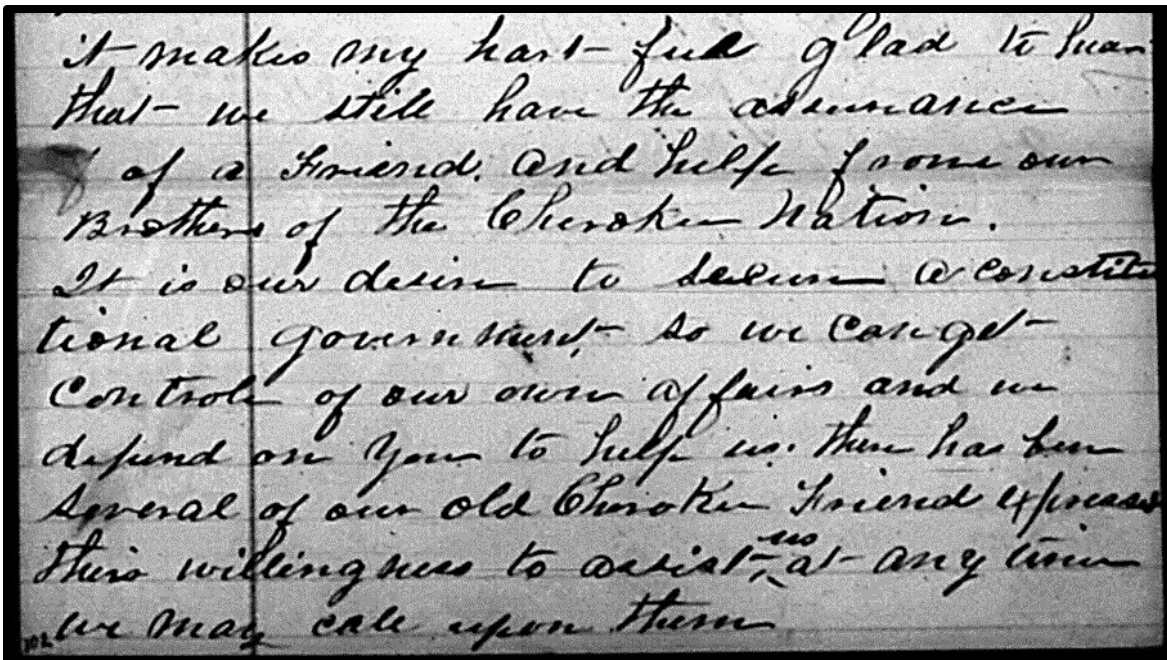 it makes my hart full glad to hear
that we still have the assurance
of a Friend. and help from our
Brothers of the Cherokee Nation.
It is our desire to secure a constitu
tional government, so we can get
Controle of our own affairs and we
depend on you to help us. there has been
several of our old Cherokee Friend expressed
their willingness to assist us at any time
we may call upon them
102